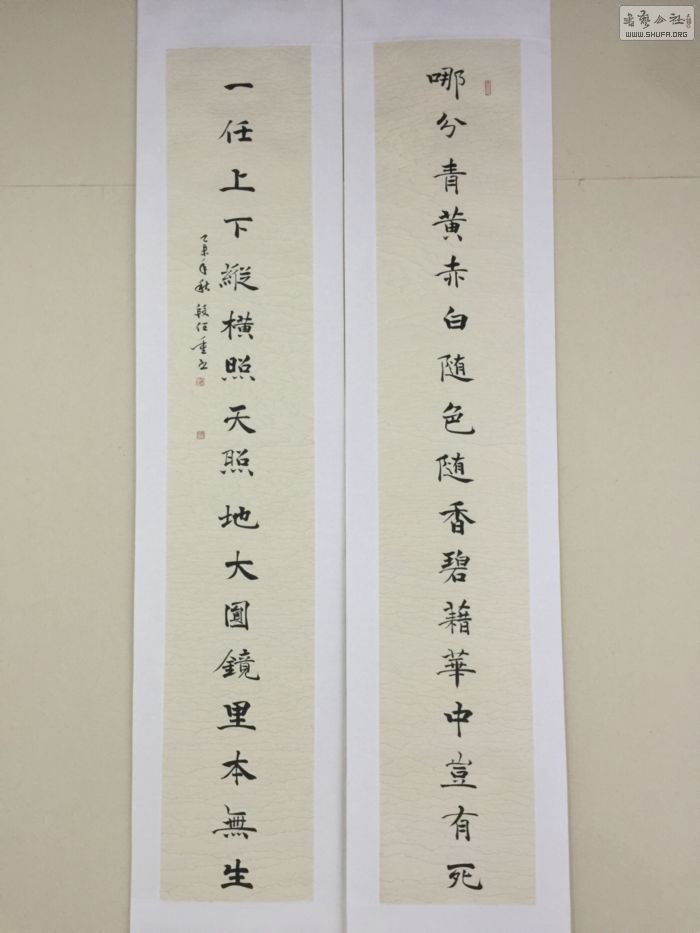 哪分青黄赤白随色随香碧藕華中豈有死
一任上下縱橫照天照地大圓鏡里本無生
乙未年秋 段任重书
书艺公社
WWW.SHUFA.ORG